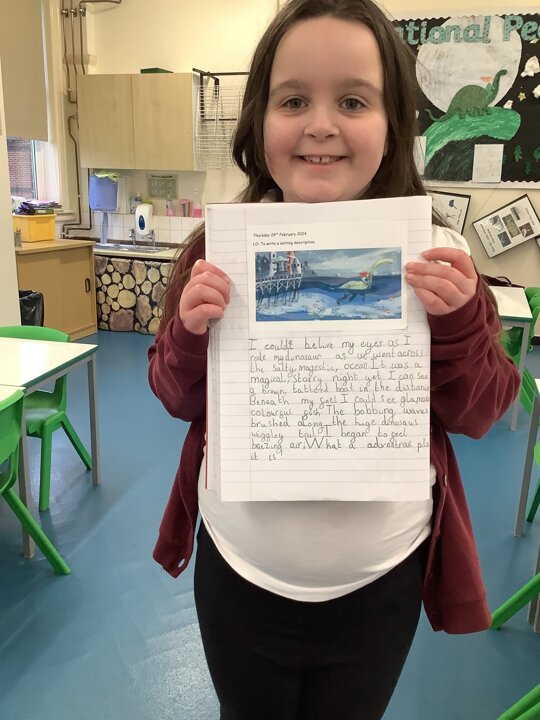 ational Pe
Thursday 29th February 2024
LO: To write a setting description
I could't belive my eyes as I
rode my dinosaur as we went across
the salty, magestic, ocean. It was a
magical, starry night yet I can see
a brown, tatterd boat in the distance
Beneath my feet I could see glamous
colourful fish. The bobbing waves
brushed along the huge dinosaurs
wiggley tail. I began to feel
breezing air. What a adventros pla
it is!